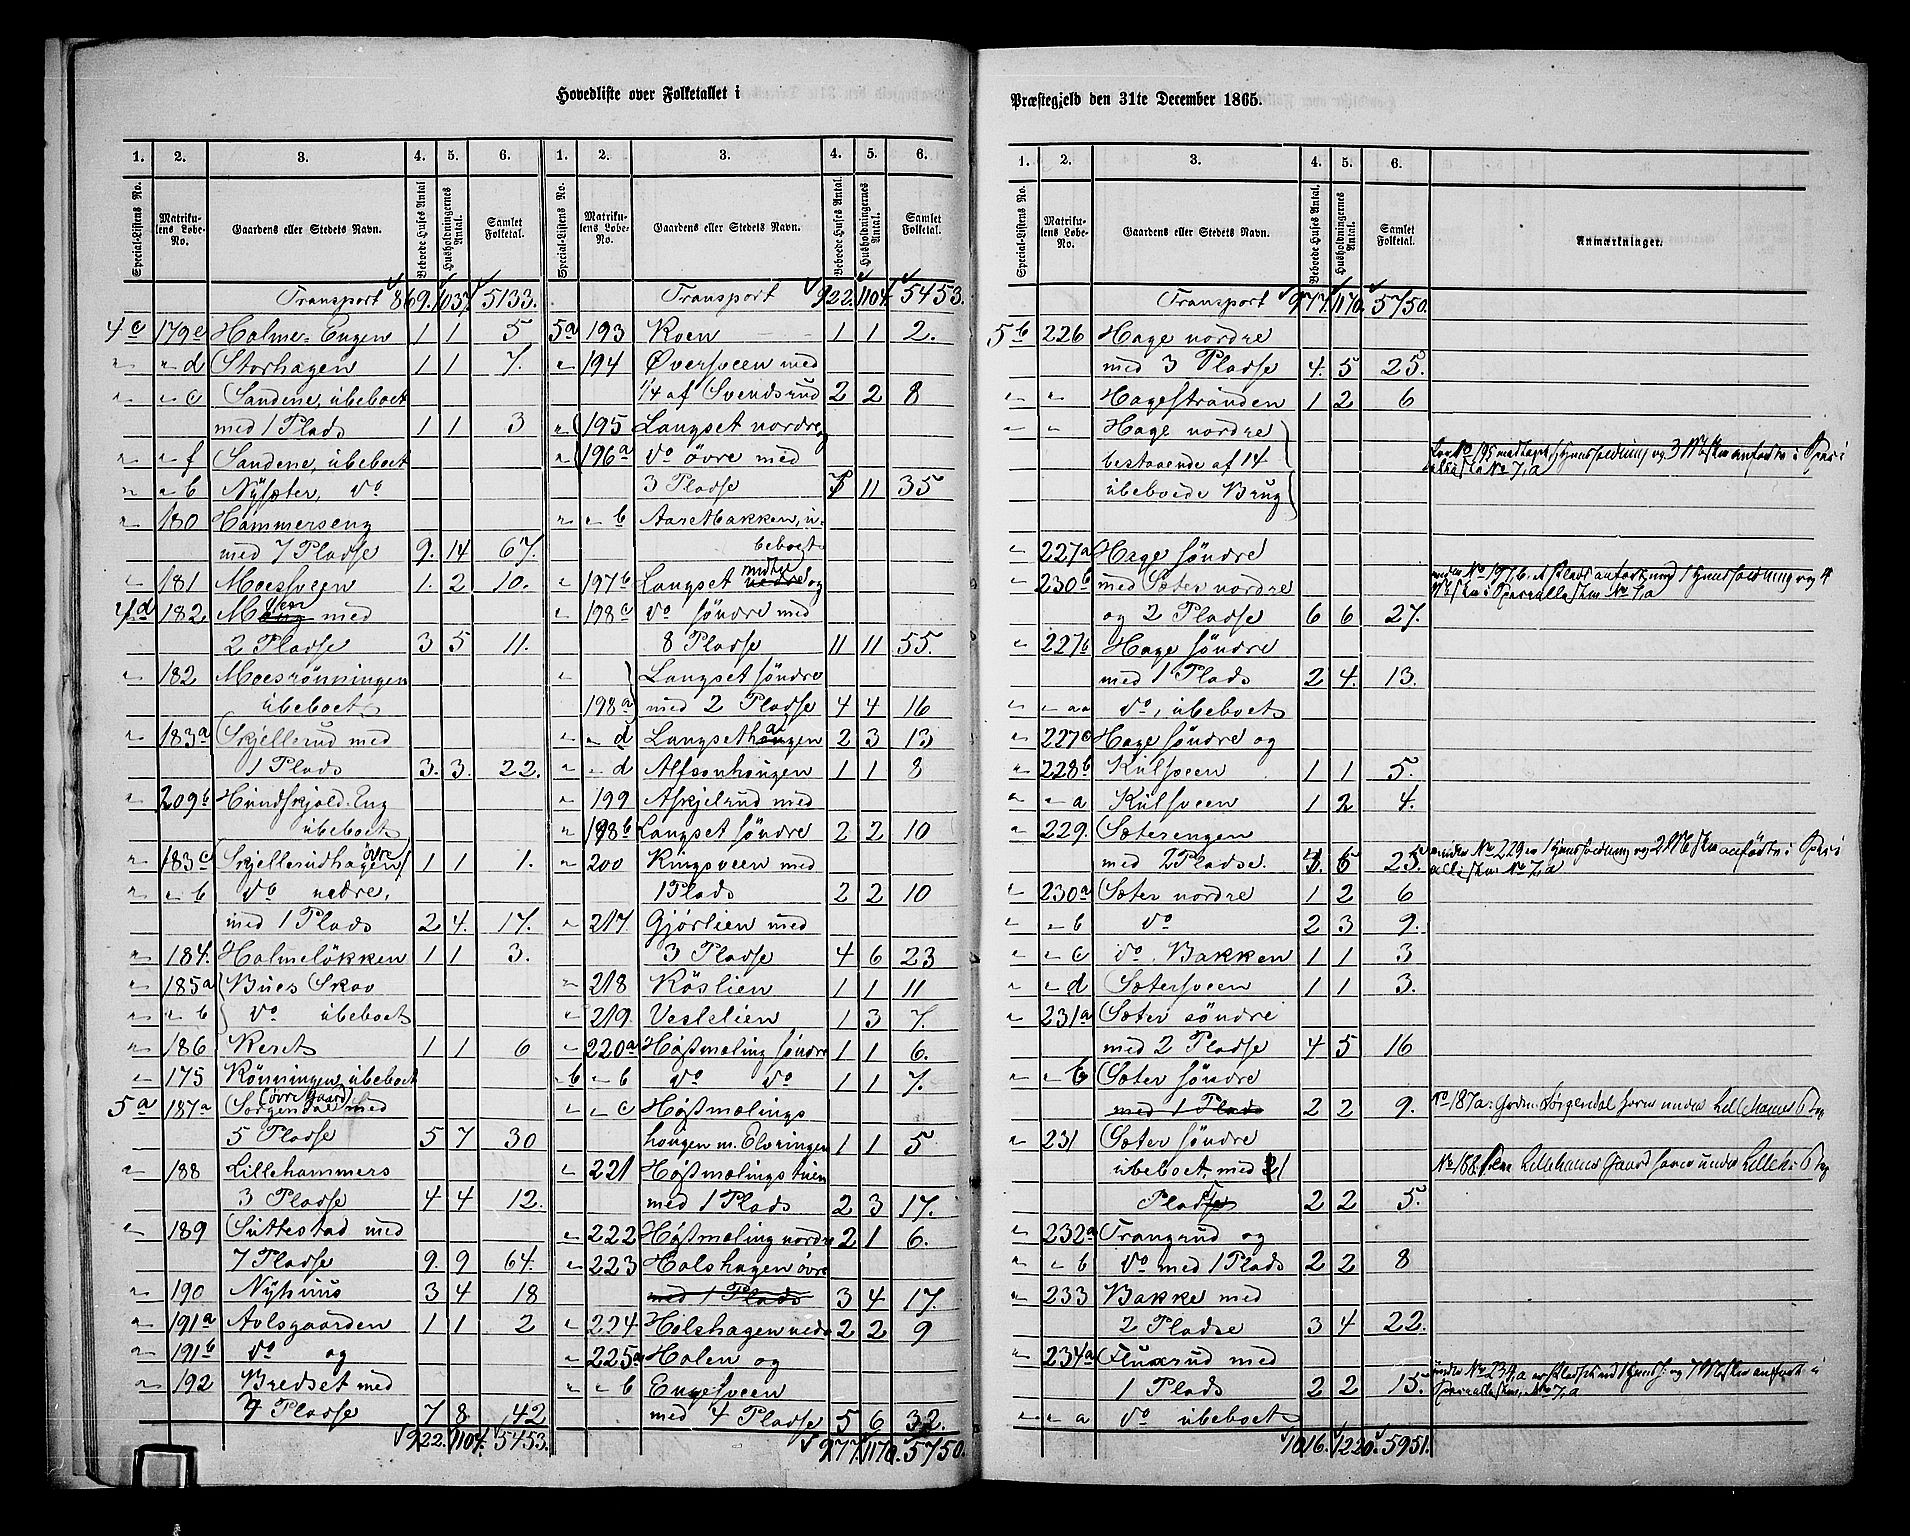 Hovedliste over Folketallet i
1. 2. 3. 4. 5. 6. 1. 2. 3. 4. 5. 6.
Special-Listens No. Matrikulens Løbe-No. Gaardens eller Stedets Navn. Beboede Huses Antal Husholdningernes Antal. Samlet Folketal. Special-Listens No. Matrikulens Løbe-No. Gaardens eller Stedets Navn. Beboede Huses Antal Husholdningernes Antal. Samlet Folketal.
Transport 869. 1037. 5133.
4c 179e Holme-Engen 1 1 5
" " d Storhagen 1 1 7.
" " c Sandene, ubeboet
med 1 Plads 1 1 3
" " f Sandene, ubeboet
" " b Nysæter, do
" 180 Hammerseng
med 7 Pladse 9. 14 67.
" 181 Moesveen 1. 2 10.
4d 182 med
2 Pladse 3 5 11.
" 182 Moesrönningen
ubeboet
" 183a Skjellerud med
1 Plads 3. 3. 22.
" 209b Hundskjold-Eng
ubeboet
" 183c Skjellerudhagen øvre 1 1 1.
" " b do nedre,
med 1 Plads 2 4. 17.
" 184. Holmelökken 1 1 3.
" 185a Bues Skov
" " b do ubeboet
" 186 Reset 1 1 6
" 175 Rönningen ubeboet
5a 187a Sorgendal (övre Gaard) med
5 Pladse 5 7 30
" 188 Lillehammers
3 Pladse 4 4 12.
" 189 Suttestad med
7 Pladse 9. 9 64.
" 190 Nyhuus 3 4 18
" 191a Aolsgaarden 1 1 2
" 191b do og
" 192 Bredset med
7 Pladse 7 8 42
922. 1104. 5453.
Transport 922. 1104. 5453.
5a 193 Roen 1 1 2.
" 194 Øversveen med
1/4 af Svendsrud 2 2 8
" 195 Langset nordre og
" 196a do övre med
3 Pladse 7 11 35
" " b Aasetbakken, u-
beboet
" 197b Langset midtre nedre og
" 198c do söndre med
8 Pladse 11 11 55.
" Langset söndre
198a med 2 Pladse 4 4 16
" " d Langsethaugen 2 3 13
" " d Alfsonhaugen 1 1 8
" 199 Askjelrud med
" 198b Langset söndre 2 2 10
" 200 Ringsveen med
1 Plads 2 2 10
" 217 Gjørlien med
3 Pladse 4 6 23
" 218 Röslien 1 1 11
" 219. Veslelien 1 3 7.
" 220a Høstmæling søndre 1 1 6.
" b " b do do 1 1 7.
" " c Høstmælings
haugen m. Elvringen 1 1 5
" 221 Høstmælings
med 1 Plads 2 3 17.
" 222 Høstmæling nordre 2 1 6.
" 223 Holshagen øvre
med 1 Plads 3 4 17.
" 224 Holshagen nedre 2 2 9
" 225a Holen og
" " b Engesveen
med 4 Pladse 5 6 32.
977. 1170. 5750.
Præstegjeld den 31te December 1865.
1. 2. 3. 4. 5. 6.
Special-Listens No. Matrikulens Løbe-No. Gaardens eller Stedets Navn. Beboede Huses Antal. Husholdningernes Antal. Samlet Folketal. Anmærkninger.
Transport 977. 1170. 5750.
5b 226 Hage nordre
med 3 Pladse 4. 5 25.
" " Hagestranden 1 2 6
" " Hage nordre
bestaaende af 14
ubeboede Brug
" 227a Hage söndre
" 230b med Sæter nordre
og 2 Pladse 6 6 27.
" 227b Hage söndre
med 1 Plads 2 4. 13.
" " aa do, ubeboet
" 227c Hage söndre og
" 228b Kulsveen 1 1 5.
" " a Kulsveen 1 2 4.
" 229. Sæterengen
med 2 Pladse. 4. 5 25
" 230a Sæter nordre 1 2 6
" " b do 2 3 9.
" " c do. Bakken 1 1 3
" " d Sætersveen 1 1 3.
" 231a Sæter söndre
med 2 Pladse 4 5 16
" " b Sæter söndre
med 1 Plads 2 2 9.
" 231 Sæter söndre
ubeboet, med 1
Plads 2 2 5.
" 232a Trangrud og
" " b do med 1 Plads 2 2 8
" 233 Bakke med
2 Pladse 3 4 22.
" 234a Fluxrud med
1 Plads 2 2 15.
" " a do ubeboet
1016. 1220. 5951.
No 195 medtaget 1 Huusholdning og 3 Msker anförte i Speci
allisten No 7, a
under No 197b et Plads anfört med 1 Huusholdning og 4
Msker i Speciallisten No 7a
under No 229 1 Huusholdning og 2 Msker anförte i Speci
allisten No 7, a
No 187a: Sørgendal under Lillehamer By
No 188 Lillehamer Gaard under Lilleh: By
under No 234, a 1 Huush: og 7 Msker anfört i
Speciallisten No 7, a